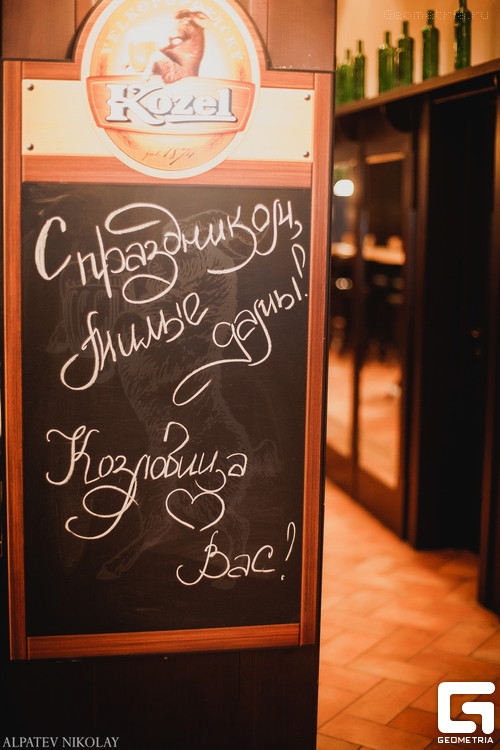 Geometria.ru
Kozel
С праздником,
милые дамы!
Козловица
♡
Вас!
ALPATEV NIKOLAY
GEOMETRIA